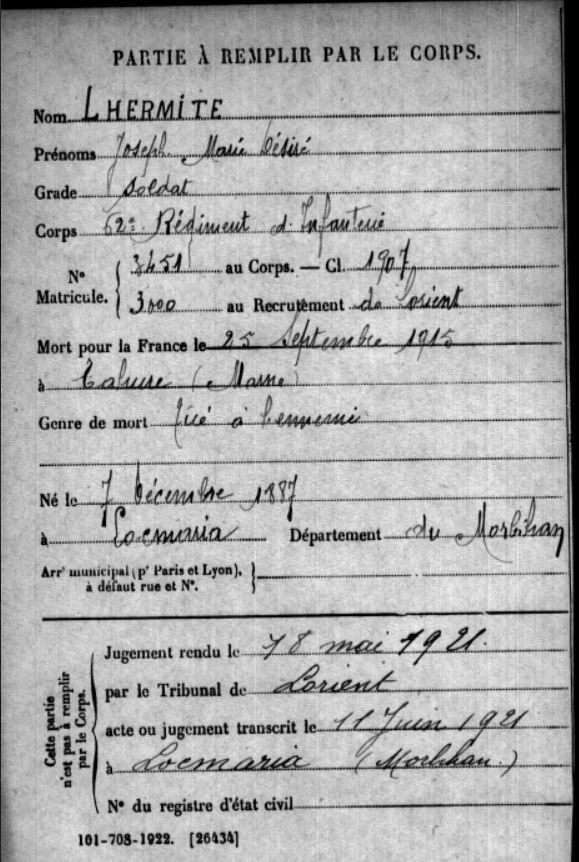 PARTIE À REMPLIR PAR LE CORPS.
Nom LHERMITE
Prénoms Joseph Marie Désiré
Grade Soldat
Corps 62e Régiment d'Infanterie
N° Matricule. { 3451 au Corps. — Cl. 1907
3000 au Recrutement de Lorient
Mort pour la France le 25 Septembre 1915
à Tahure (Marne)
Genre de mort Tué à l'ennemi
Né le 7 Décembre 1887
à Locmaria Département du Morbihan
Arrt municipal (pr Paris et Lyon), }
à défaut rue et N°.
Cette partie n'est pas à remplir par le Corps. {
Jugement rendu le 18 mai 1921
par le Tribunal de Lorient
acte ou jugement transcrit le 11 Juin 1921
à Locmaria (Morbihan)
N° du registre d'état civil
101-708-1922. [26434]